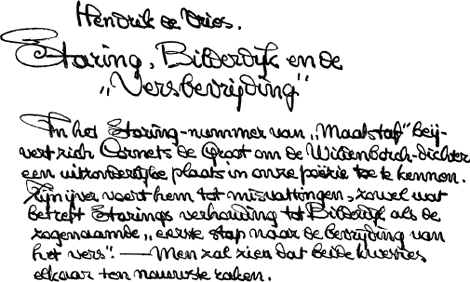 Hendrik de Vries.
Staring, Bilderdijk en de
„Versbevrijding"
In het Staring-nummer van „Maatstaf" beij-
vert zich Cornets de Groot om de Wildenborch-dichter
een uitzonderlijke plaats in onze poëzie toe te kennen.
Zijn ijver voert hem tot misvattingen, zowel wat
betreft Starings verhouding tot Bilderdijk als de
zogenaamde „eerste stap naar de bevrijding van
het vers". — Men zal zien dat beide kwesties
elkaar ten nauwste raken.